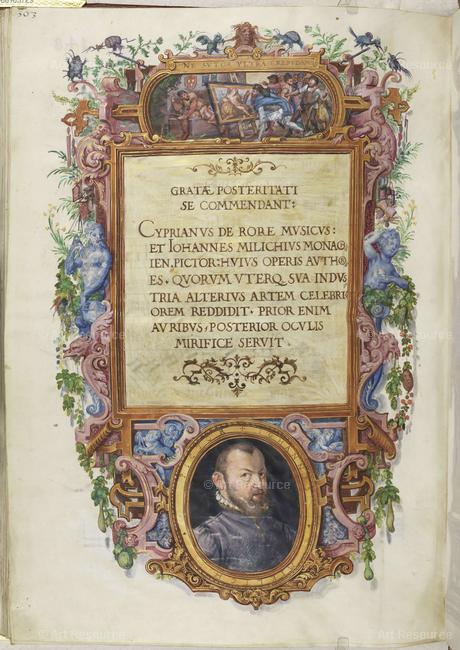 303
NE SVTOR VLTRA CREPIDAM
GRATÆ POSTERITATI
SE COMMENDANT:
CYPRIANVS DE RORE MVSICVS:
ET IOHANNES MILICHIVS MONAC
IEN. PICTOR: HVIVS OPERIS AVTHOR
ES. QVORVM VTERQ SVA INDVS
TRIA ALTERIVS ARTEM CELEBRI
OREM REDDIDIT. PRIOR ENIM
AVRIBVS, POSTERIOR OCVLIS
MIRIFICE SERVIT.
© Art Resource
© Art Resource
© Art Resource